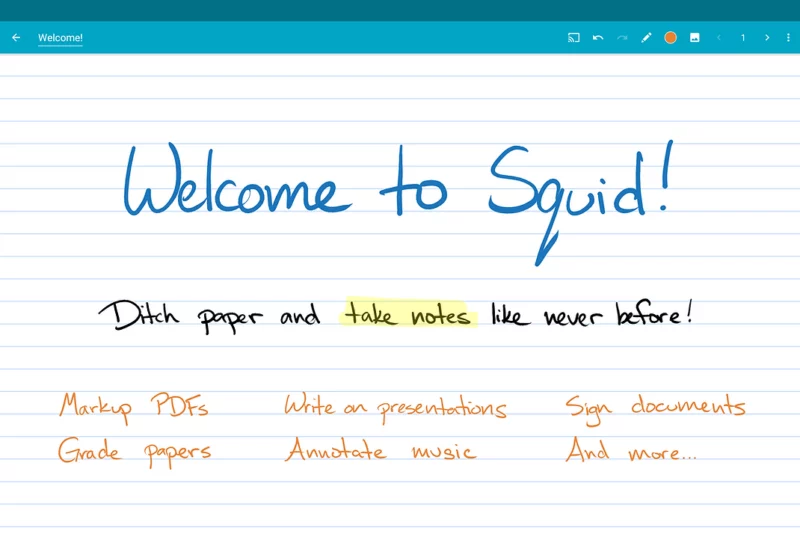 Welcome!
1
Welcome to Squid!
Ditch paper and take notes like never before!
Markup PDFs Write on presentations Sign documents
Grade papers Annotate music And more...